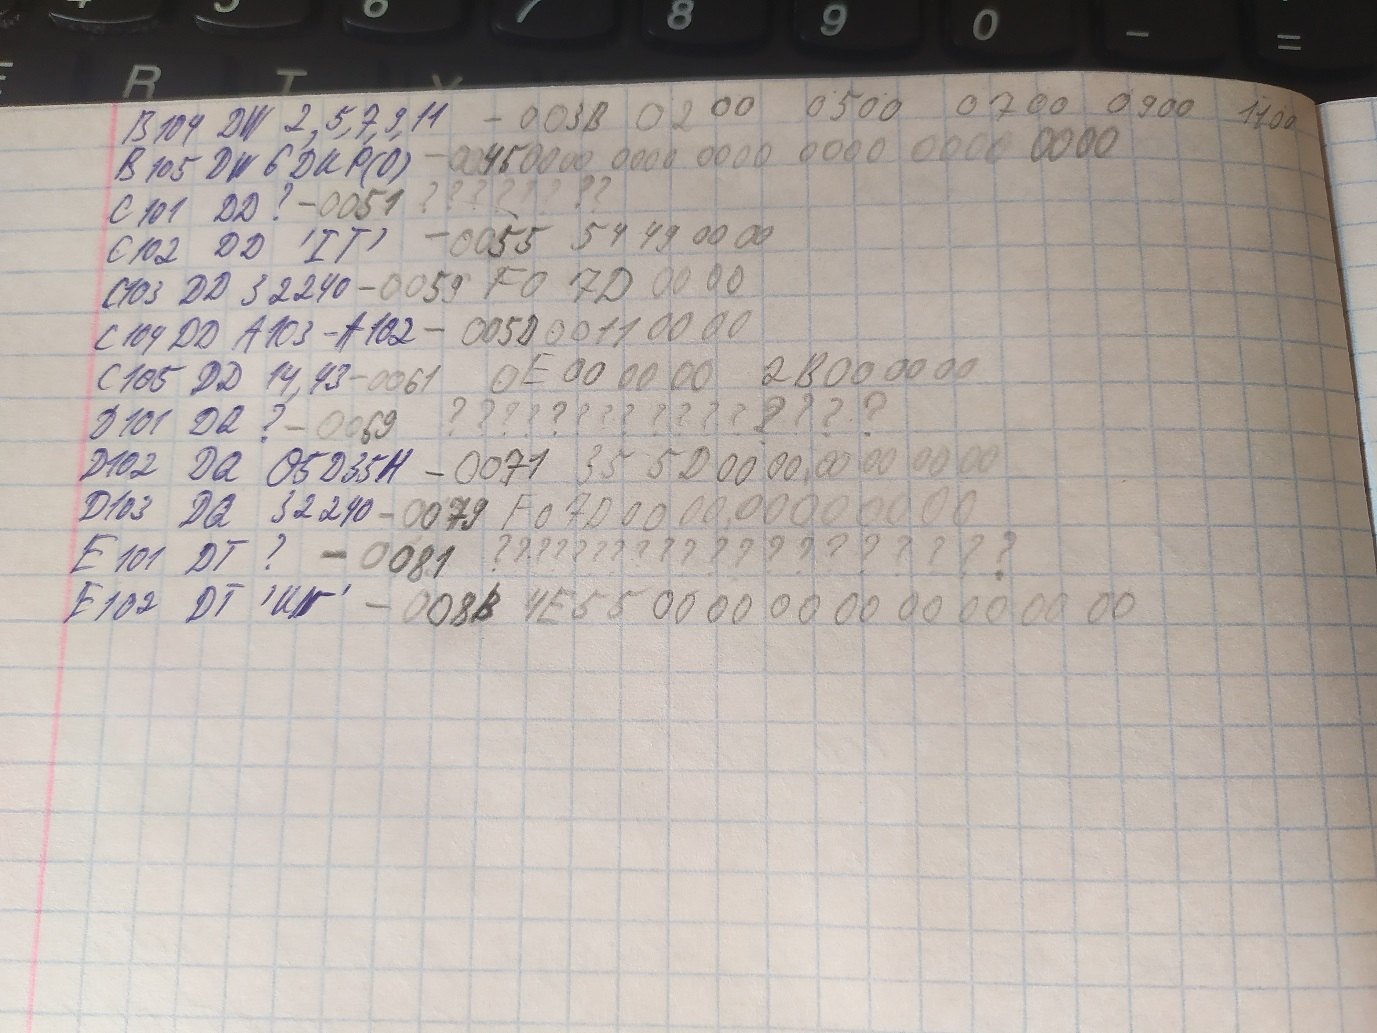 4 5 6 7 8 9 0 - =
E R T Y
B104 DW 2,5,7,9,11 - 003B 0200 0500 0700 0900 1100
B105 DW 6 DUP(0) - 00450000 0000 0000 0000 0000 0000
C101 DD ? - 0051 ????????
C102 DD 'IT' - 0055 5449 0000
C103 DD 32240 - 0059 F0 7D 0000
C104 DD A103-A102 - 005D 0011 0000
C105 DD 14,43 - 0061 0E 00 00 00 2B000000
D101 DQ ? - 0069 ????????????????
D102 DQ 05D35H - 0071 35 5D 00 00 00 00 00 00
D103 DQ 32240 - 0079 F0 7D 00 00 00 00 00 00
E101 DT ? - 0081 ????????????????????
E102 DT - 008B 4E 55 00 00 00 00 00 00 00 00